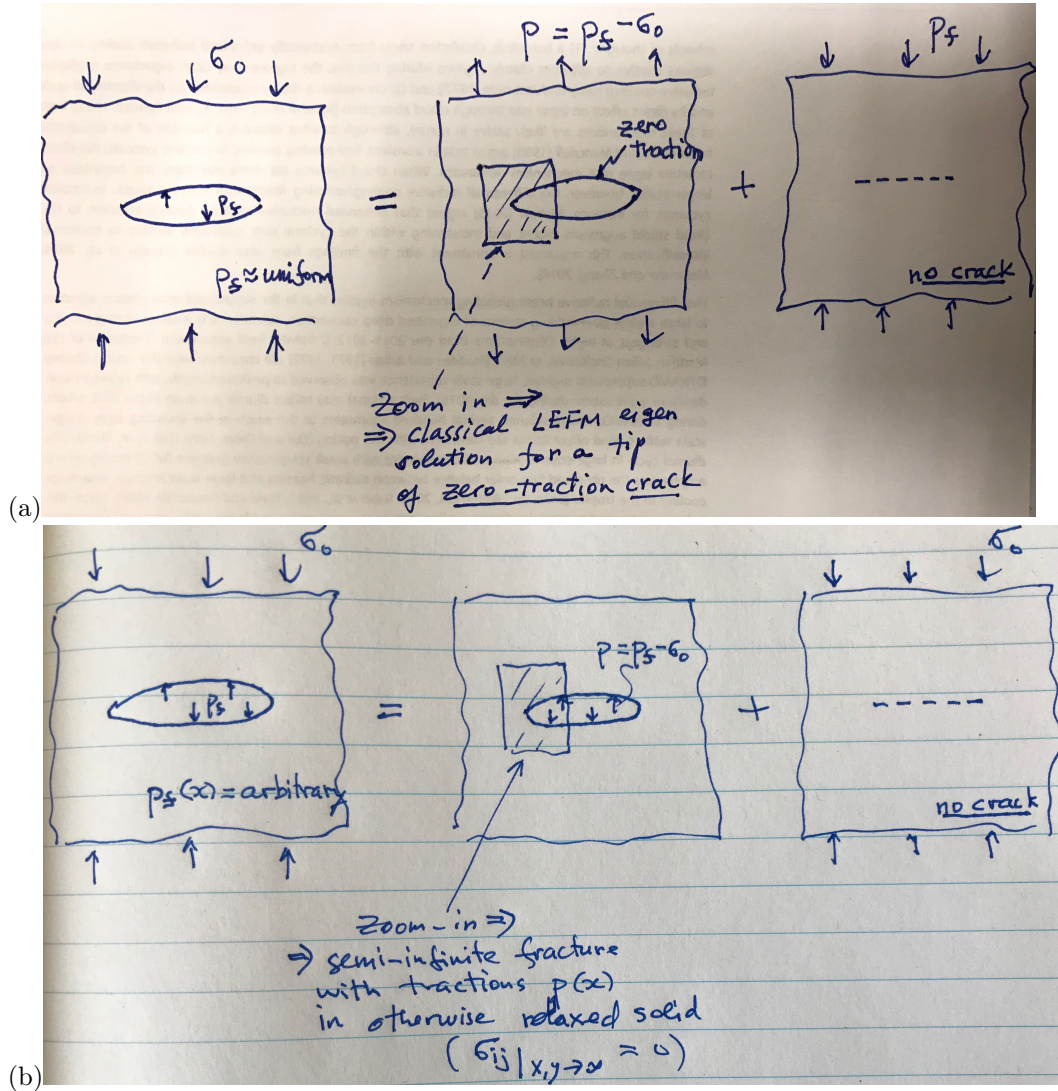 σ₀
p = p_f - σ₀
p_f
zero
traction
p_f
=
+
p_f ≈ uniform
no crack
Zoom in ⇒
⇒ classical LEFM eigen
solution for a tip
of zero-traction crack
(a)
σ₀
σ₀
p = p_f - σ₀
p_f
=
+
p_f(x) = arbitrary
no crack
Zoom-in ⇒
⇒ semi-infinite fracture
with tractions p(x)
in otherwise relaxed solid
(σij|x,y→∞ = 0)
(b)